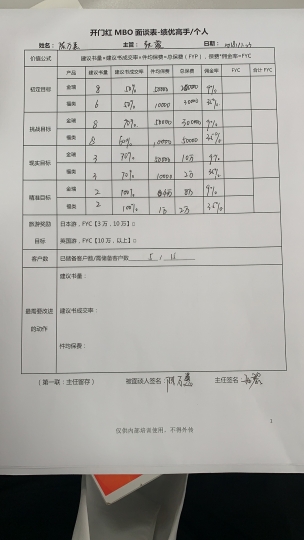 开门红 MBO 面谈表-绩优高手/个人
姓名： 主管： 日期：
价值公式 建议书量×建议书成交率×件均保费=总保费（FYP），保费*佣金率=FYC
产品 建议书量 建议书成交率 件均保费 总保费 佣金率 FYC 合计 FYC
锁定目标 金瑞 8 50% 9%
福类 6 50% 10000 30000 36%
挑战目标 金瑞 8 70% 50000 9%
福类 8 60% 10000 50000 36%
现实目标 金瑞 3 70% 50000 10万 9%
福类 3 70% 10000 2万 36%
精准目标 金瑞 2 100% 8万 9%
福类 2 100% 1万 2万 36%
旅游奖励 日本游，FYC【3 万，10 万】□
目标 英国游，FYC【10 万，以上】□
客户数 已储备客户数/需储备客户数 5 / 16
建议书量：
最需要改进 建议书成交率：
的动作
件均保费：
（第一联：主任留存） 被面谈人签名： 主任签名：
1
仅供内部培训使用，不得外传